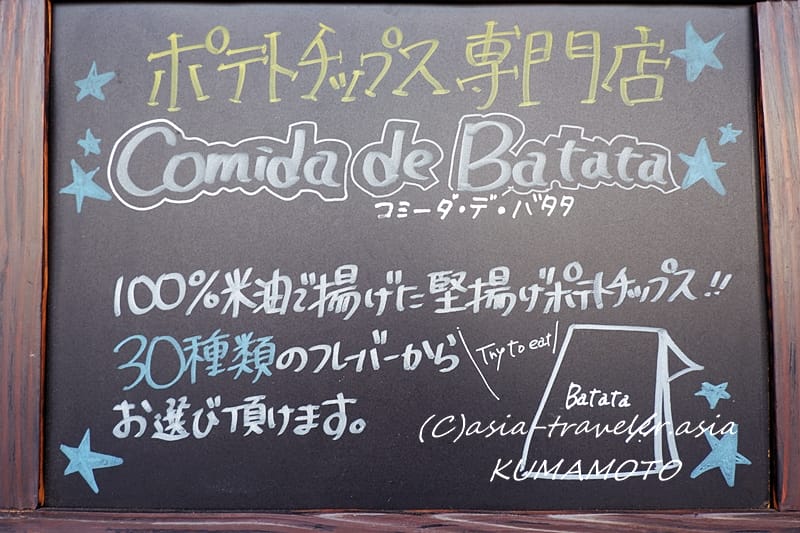 ポテトチップス専門店
Comida de Batata
コミーダ・デ・バタタ
100%米油で揚げた堅揚げポテトチップス!!
30種類のフレーバーから
お選び頂けます。
Try to eat
Batata
(C)asia-traveler.asia
KUMAMOTO